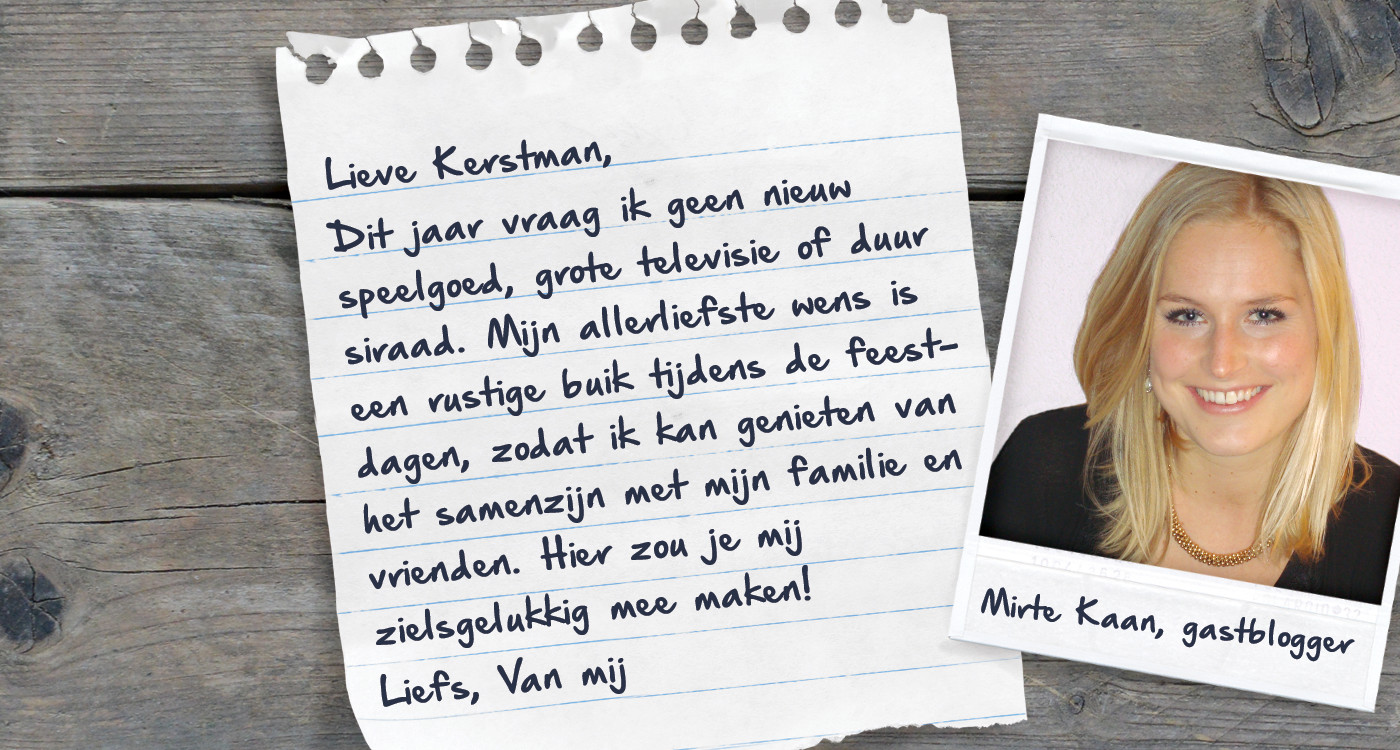 Lieve Kerstman,
Dit jaar vraag ik geen nieuw
speelgoed, grote televisie of duur
siraad. Mijn allerliefste wens is
een rustige buik tijdens de feest-
dagen, zodat ik kan genieten van
het samenzijn met mijn familie en
vrienden. Hier zou je mij
zielsgelukkig mee maken!
Liefs, Van mij
Mirte Kaan, gastblogger